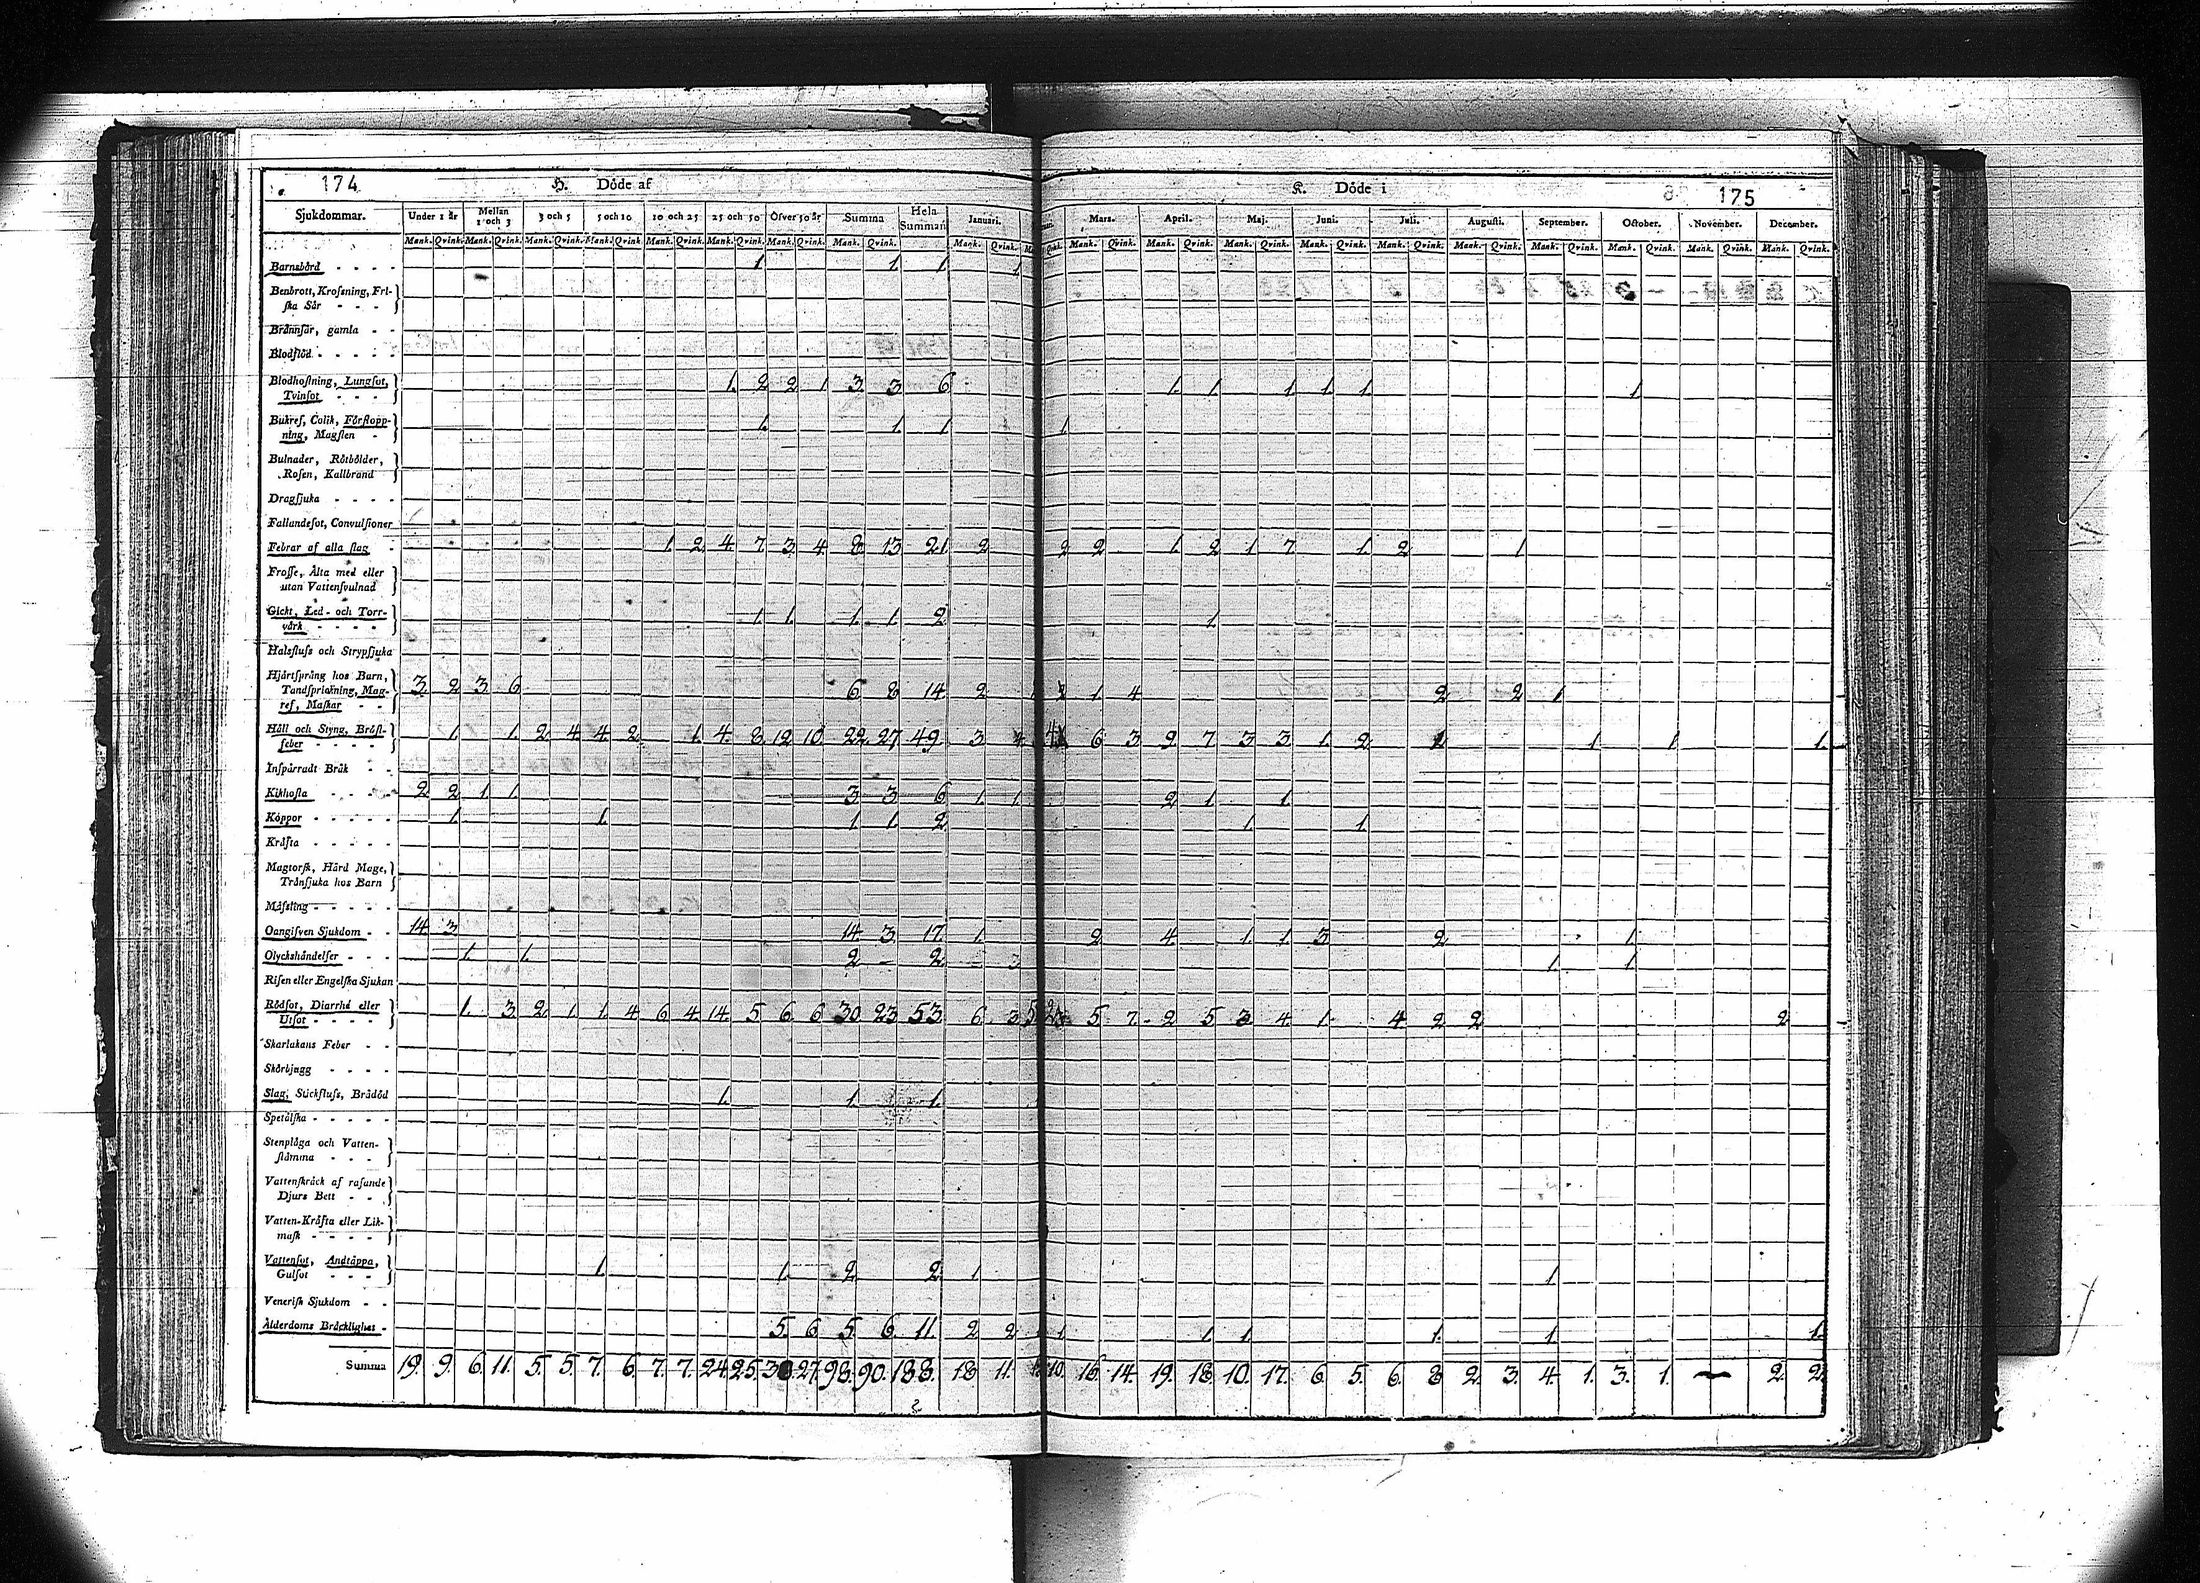 174 H. Döde af K. Döde i 175
Sjukdommar. Under 1 år Mellan 1 och 3 3 och 5 5 och 10 10 och 25 25 och 50 Öfver 50 år Summa Hela Summan Januari. Mars. April. Maj. Juni. Juli. Augusti. September. October. November. December.
Mank. Qvink. Mank. Qvink. Mank. Qvink. Mank. Qvink. Mank. Qvink. Mank. Qvink. Mank. Qvink. Mank. Qvink. Mank. Qvink. Qvink. Mank. Qvink. Mank. Qvink. Mank. Qvink. Mank. Qvink. Mank. Qvink. Mank. Qvink. Mank. Qvink. Mank. Qvink. Mank. Qvink. Mank. Qvink.
Barnsbörd 1 1 1 1
Benbrott, Krossning, Friska Sår
Brännsår, gamla
Blodflöd
Blodhostning, Lungsot, Tvinsot 1. 2 2 1 3 3 6 1 1 1 1 1 1
Bukref, Colik, Förstoppning, Magsten 1. 1. 1 1
Bulnader, Rötbölder, Rosen, Kallbrand
Dragsjuka
Fallandesot, Convulsioner
Febrar af alla slag 1 2 4 7 3 4 8 13 21 2 2 2 1 2 1 7 1 2 1
Frosse, Älta med eller utan Vattensvulnad
Gickt, Led- och Torrvärk 1 1 1 1 2 1
Halsfluss och Strypsjuka
Hjärtsprång hos Barn, Tandsprickning, Magref, Maskar 3 2 3 6 6 8 14 2 1 4 2 2 1
Håll och Styng, Bröstfeber 1 1 2 4 4 2 1 4 8 12 10 22 27 49 3 4 6 3 9 7 3 3 1 2 1 1 1
Inspärradt Bråk
Kikhosta 2 2 1 1 3 3 6 1 1 2 1 1
Koppor 1 1 1 1 2 1 1
Kräfta
Magtorsk, Hård Mage, Trånsjuka hos Barn
Mässling
Oangifven Sjukdom 14 3 14 3 17 1 2 4 1 1 3 2 1
Olyckshändelser 1 1 2 – 2 3 1 1
Risen eller Engelska Sjukan
Rödsot, Diarrhé eller Utsot 1 3 2 1 1 4 6 4 14 5 6 6 30 23 53 6 3 5 2 5 7 2 5 3 4 1 4 2 2 2
Skarlakans Feber
Skörbjugg
Slag, Stickfluss, Brådöd 1 1 1
Spetälska
Stenplåga och Vattenstämma
Vattenskräck af rasande Djurs Bett
Vatten-Kräfta eller Likmask
Vattensot, Andtäppa, Gulsot 1 1 2 2 1 1
Venerisk Sjukdom
Ålderdoms Bräcklighet 5 6 5 6 11 2 2 1 1 1 1 1 1
Summa 19. 9. 6. 11. 5. 5. 7. 6. 7. 7. 24. 25. 30. 27. 98. 90. 188. 18. 11. 10. 16. 14. 19. 18. 10. 17. 6. 5. 6. 8. 2. 3. 4. 1. 3. 1. – 2. 2.